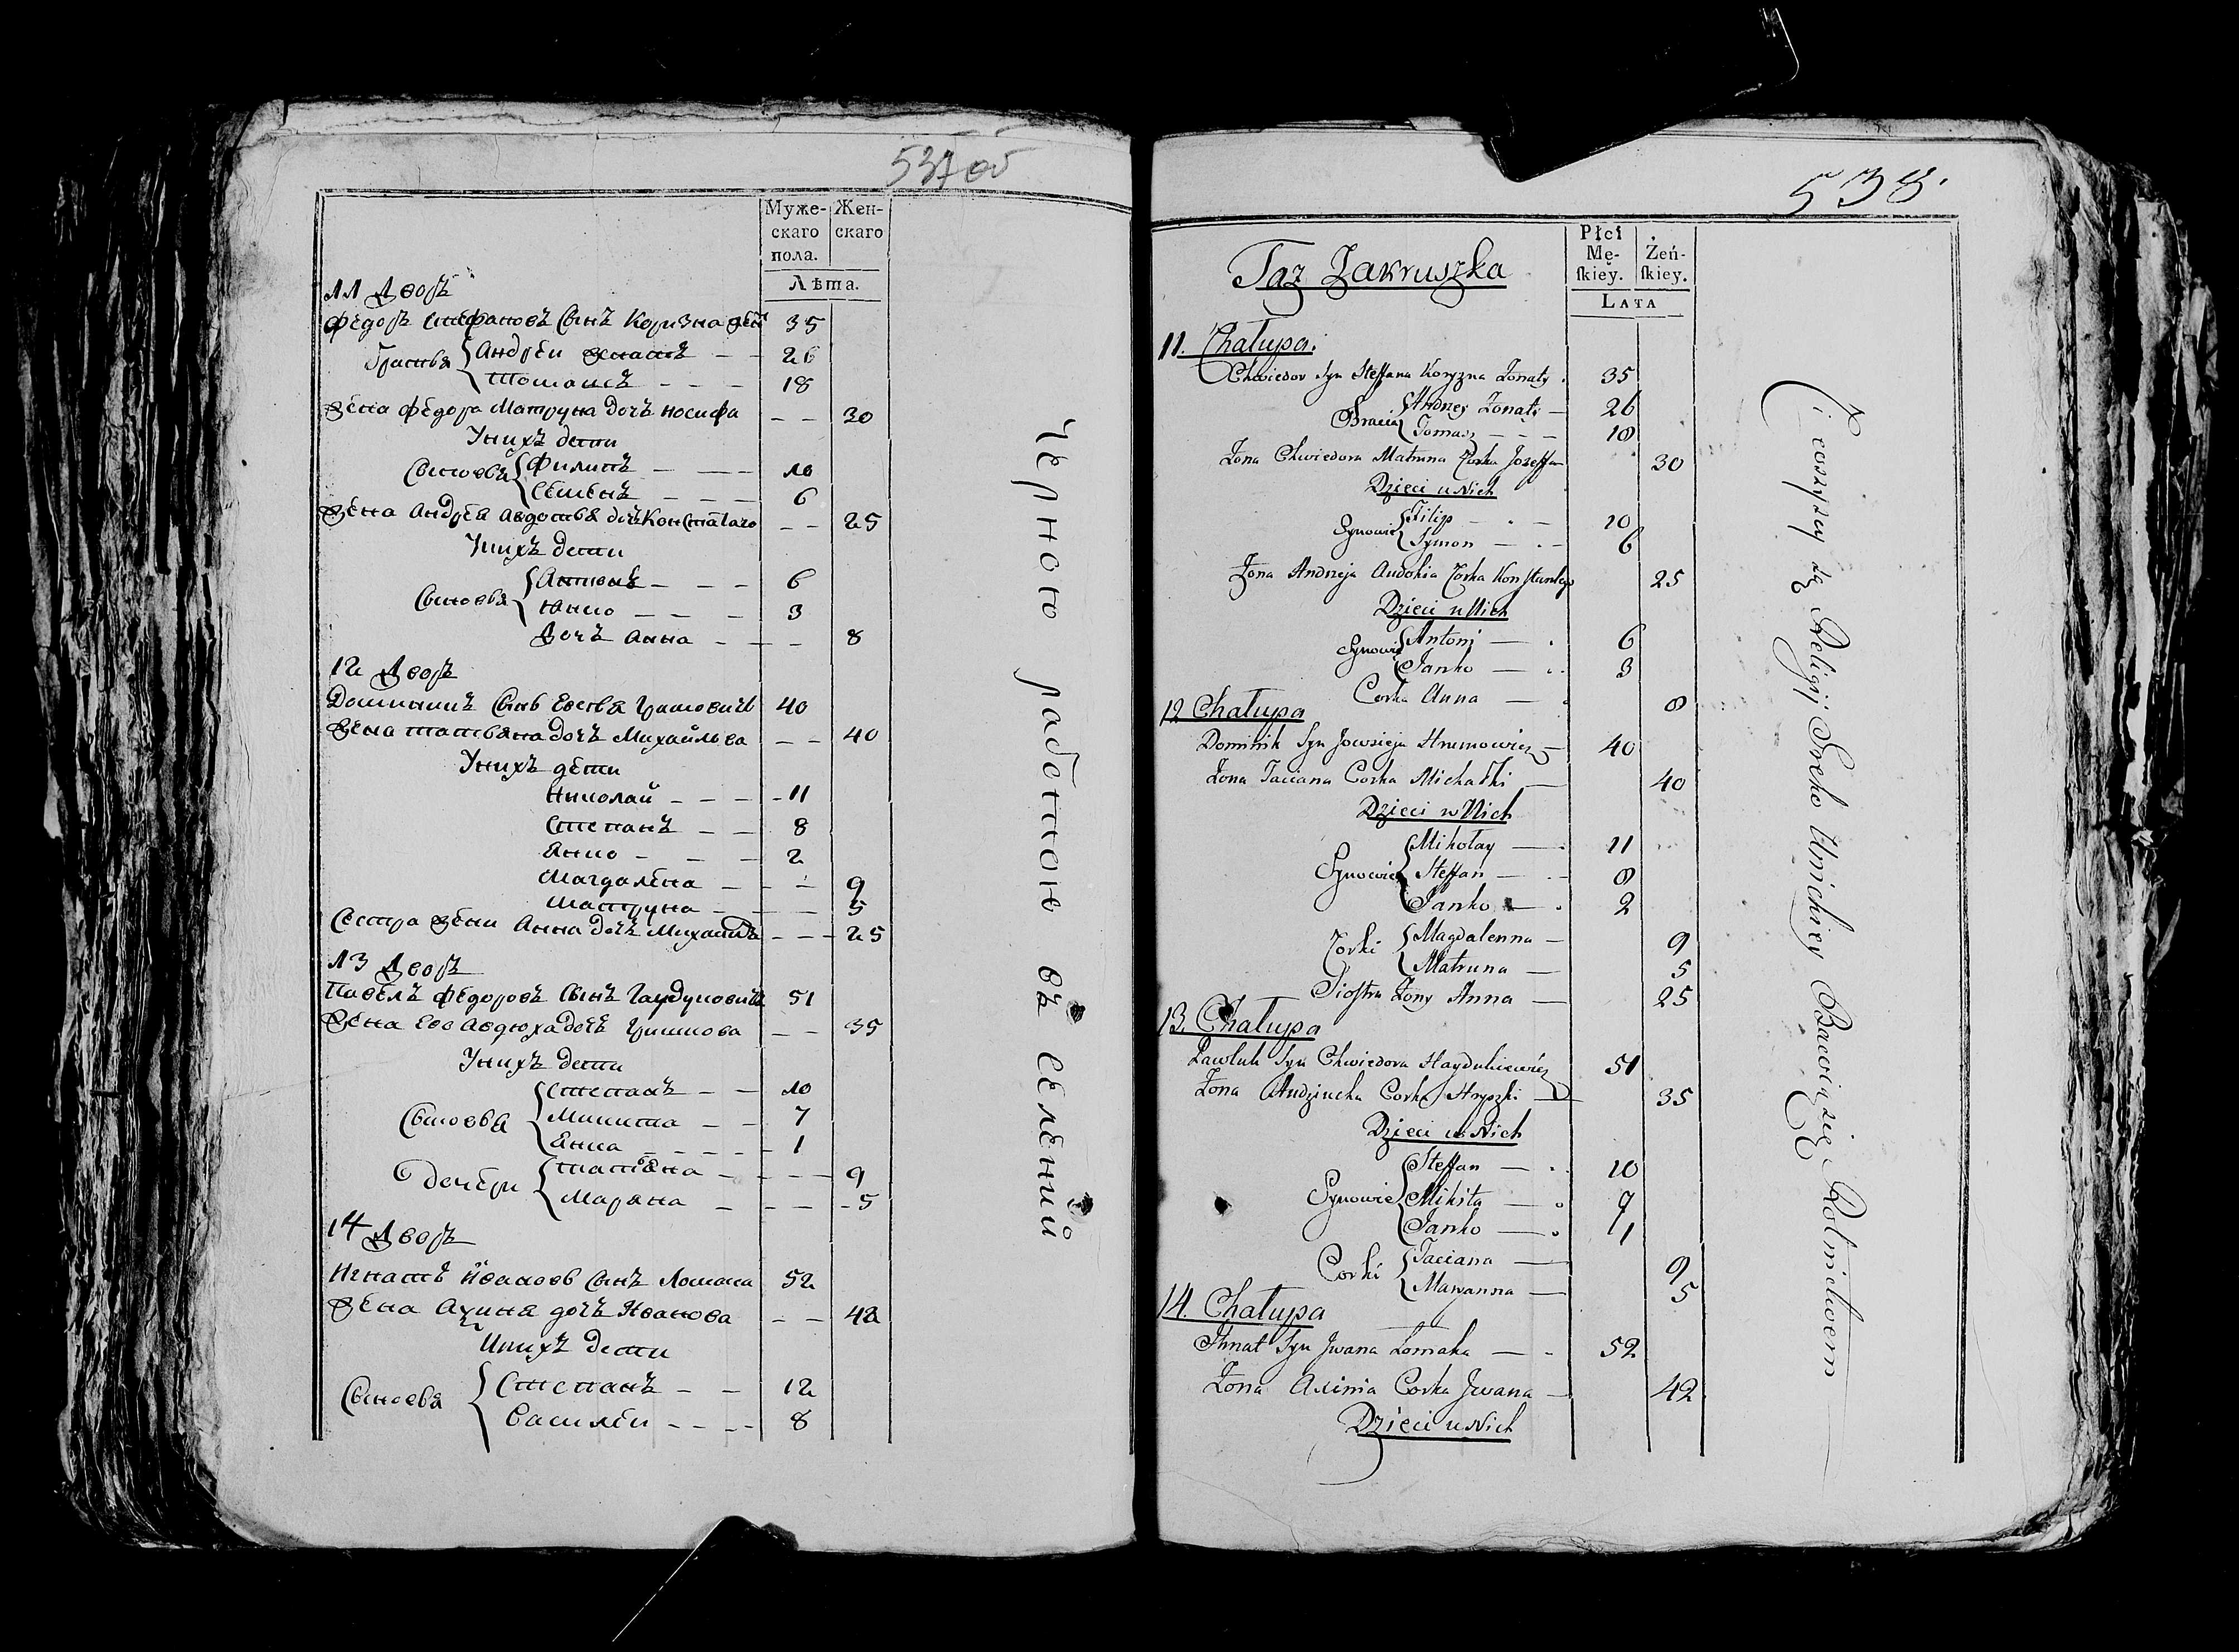 537 об
Муже-
скаго
пола.
Жен-
скаго
Лѣта.
11 Дворъ
Федоръ Стефановъ Сынъ Коризна жен 35
братья Андрѣи женатъ — — 26
Томашъ — — — 18
Жена Федора Матруна дочъ Иосифа — — 30
У нихъ дети
Сыновья Филипъ — — — 10
Семенъ — — — 6
Жена Андрея Авдотья дочъ — — 25
У нихъ дети
Сыновья Антонъ — — — 6
Янко — — — 3
Дочъ Анна — — — 8
12 Дворъ
Доминикъ Сынъ Евсѣя 40
Жена Татьяна дочъ Михайлова — — 40
У нихъ дети
Николай — — — 11
Степанъ — — 8
Янко — — — 2
Магдалена — — — 9
Матруна — — — 5
Сестра жени Анна дочъ — — — 25
13 Дворъ
Павелъ Федоровъ Сынъ 51
Жена Его Авдюха дочъ Гришкова — — 35
У нихъ дети
Сыновья Степанъ — — 10
Микита — — 7
Янка — — — — 1
дочери Татьяна — — — — 9
Маряна — — — — 5
14 Дворъ
Игнатъ Ивановъ Сынъ Ломака 52
Жена Ахиня дочъ Иванова — — 42
У нихъ дети
Сыновья Степанъ — — 12
Василѣи — — — 8
черною работою въ селѣний
538.
Płci
Mę-
ſkiey.
Żeń-
ſkiey.
Lata
Taz Zakruszka
11. Chałupa.
Chwiedor Syn Steffana Koryzna Żonaty 35
Bracia Andrzey Żonaty — 26
Tomasz — — — 18
Żona Chwiedora Matruna Corka Jozeffa 30
Dzieci u Nich
Synowie Filip — — 10
Symon — — 6
Żona Andrzeja Audokia Corka 25
Dzieci u Nich
Synowie Antoni — 6
Janko — 3
Corka Anna — 8
12 Chałupa
Dominik Syn Jowsieja Hrumowicz — 40
Żona Taciana Corka Michałki — 40
Dzieci u Nich
Synowie Mikołay — 11
Steffan — — 8
Janko — 2
Corki Magdalenna — 9
Matruna — 5
Siostra Żony Anna — 25
13. Chałupa
Pawluk Syn Chwiedora Haydukiewicz 51
Żona Audziucha Corka Hryszki — 35
Dzieci u Nich
Synowie Steffan — 10
Mikita — 7
Janko — 1
Corki Taciana — 9
Maryanna — 5
14. Chałupa
Ihnat Syn Jwana Łomaka — — 52
Żona Axinia Corka Jwana — 42
Dzieci u Nich
Ci wszyscy są Religij Greko Unickiey Bawią się Rolnictwem